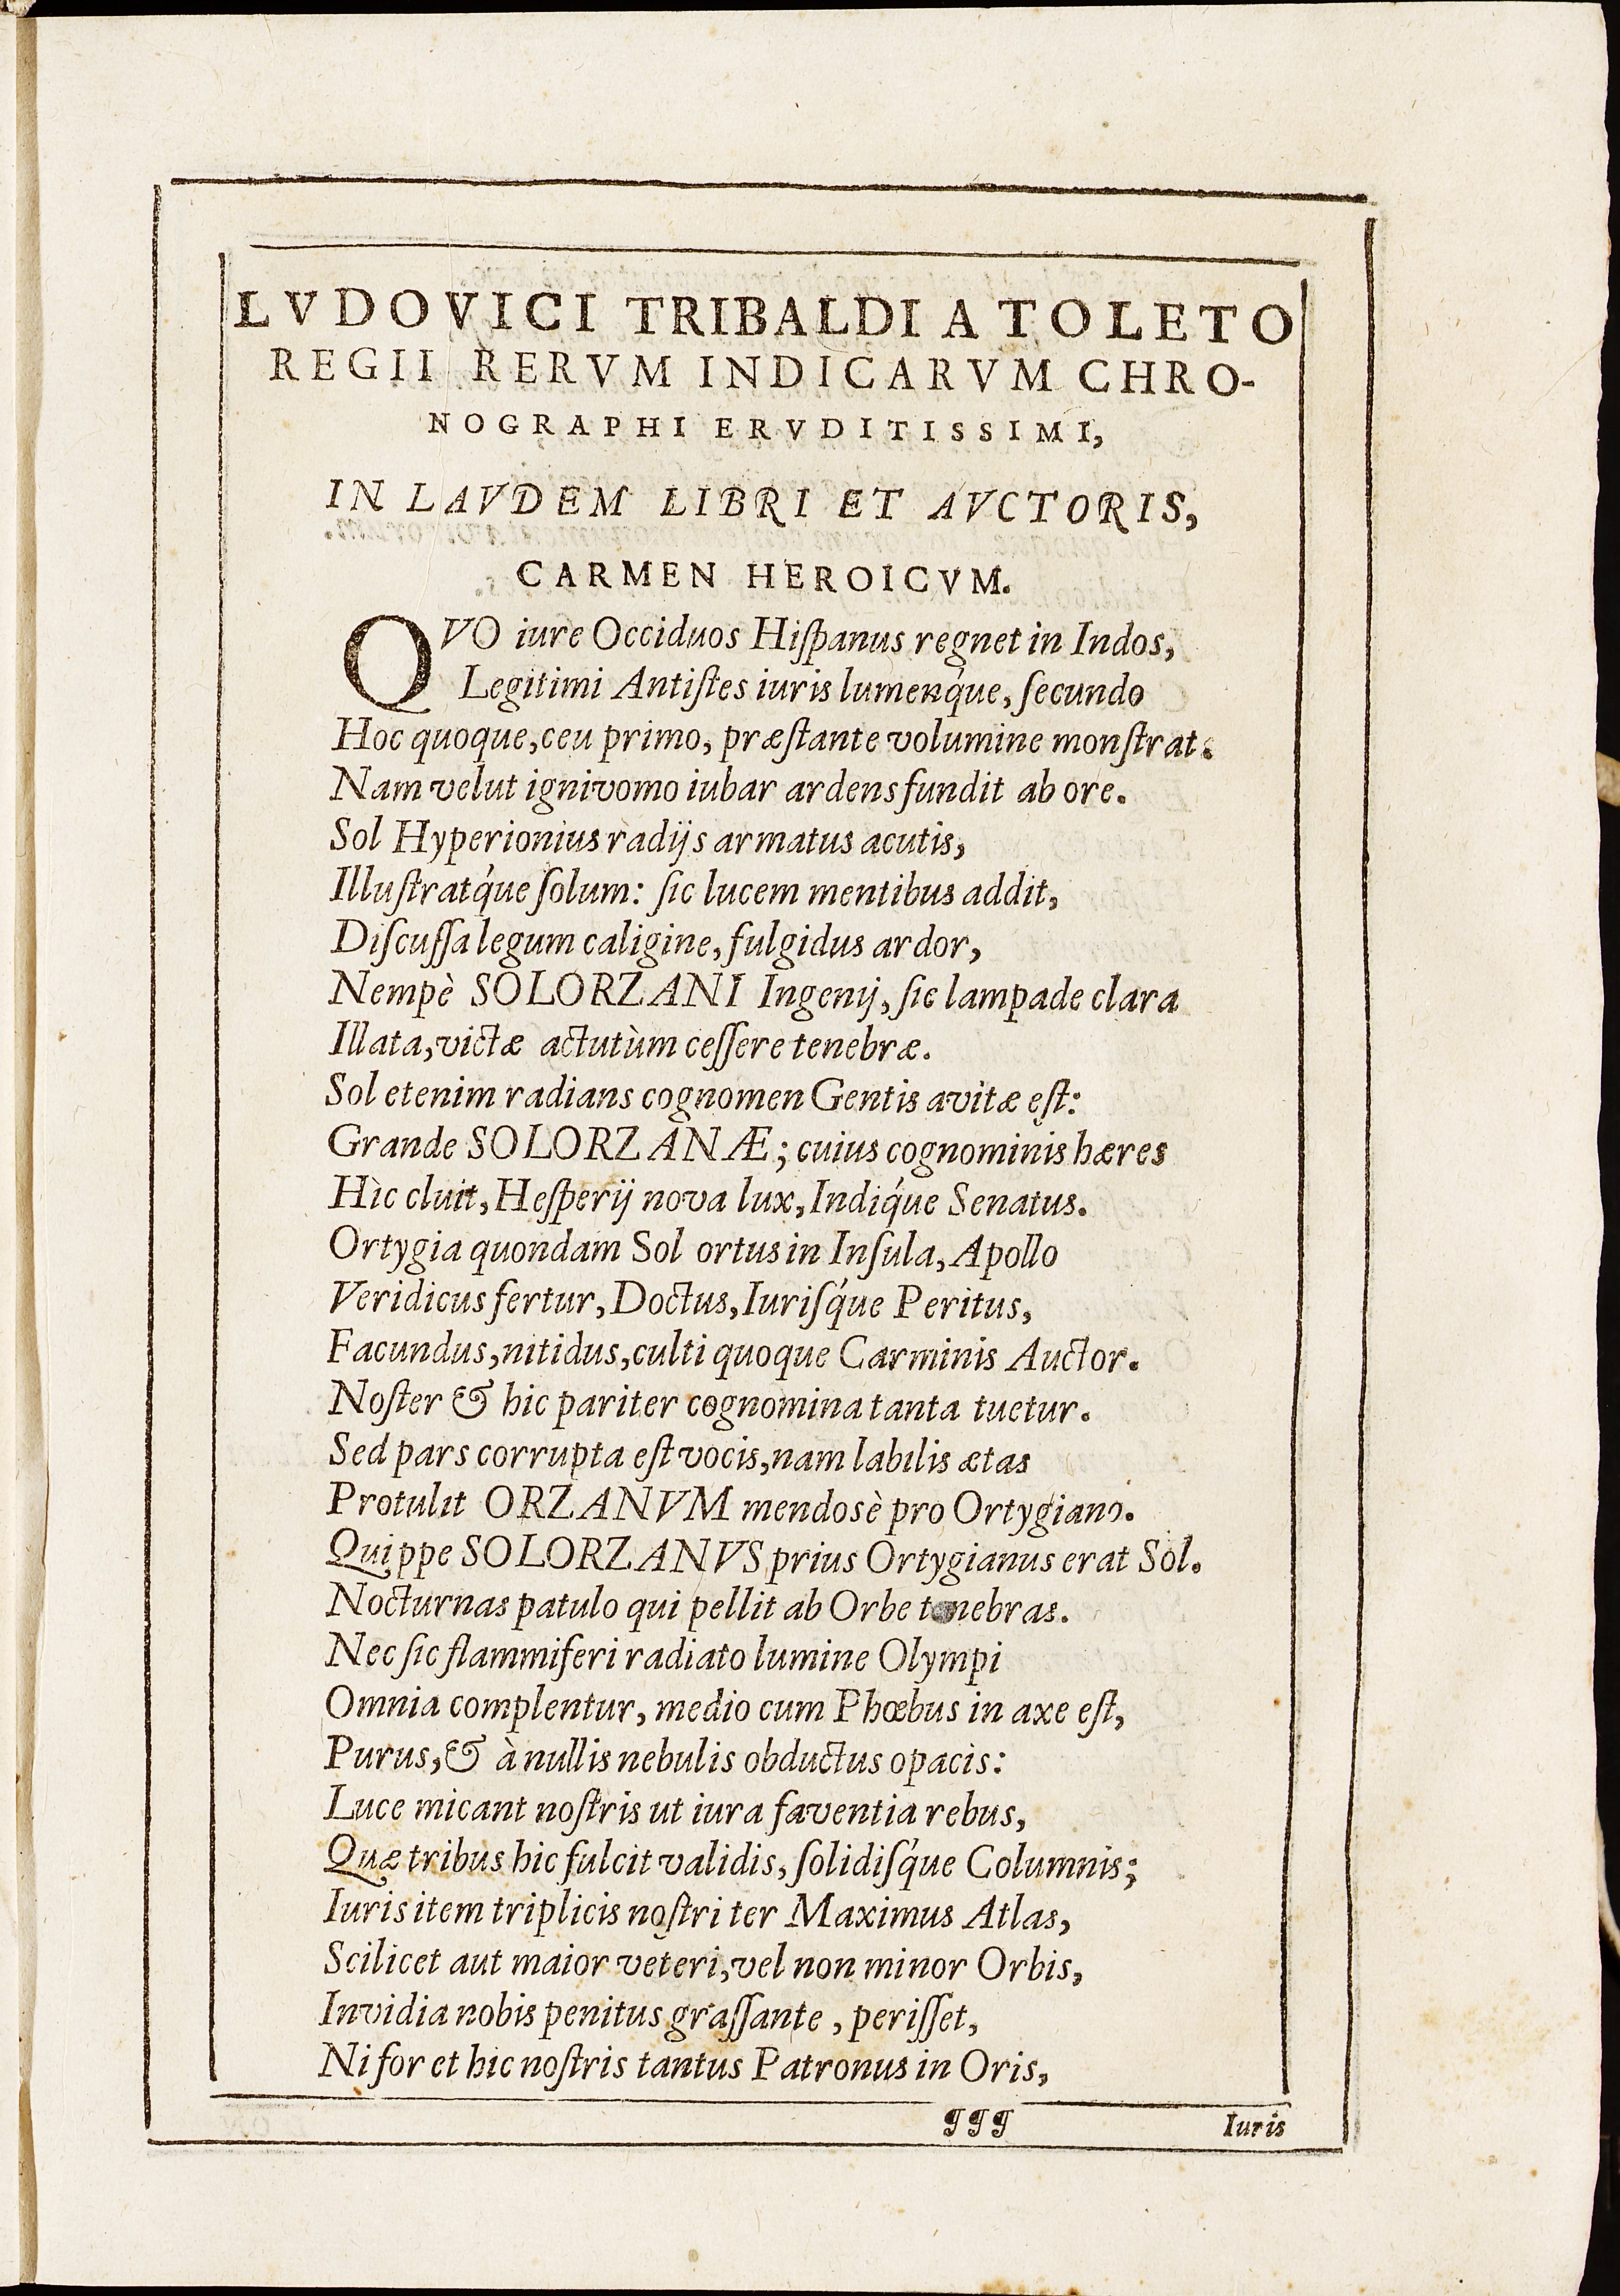 LVDOVICI TRIBALDI A TOLETO
REGII RERVM INDICARVM CHRO-
NOGRAPHI ERVDITISSIMI,
IN LAVDEM LIBRI ET AVCTORIS,
CARMEN HEROICVM.
QVO iure Occiduos Hiſpanus regnet in Indos,
Legitimi Antiſtes iuris lumenq́ue, ſecundo
Hoc quoque, ceu primo, præſtante volumine monſtrat.
Nam velut ignivomo iubar ardens fundit ab ore.
Sol Hyperionius radijs armatus acutis,
Illuſtratq́ue ſolum: ſic lucem mentibus addit,
Diſcuſſa legum caligine, fulgidus ardor,
Nempè SOLORZANI Ingenij, ſic lampade clara
Illata, victæ actutùm ceſſere tenebræ.
Sol etenim radians cognomen Gentis avitæ eſt:
Grande SOLORZANÆ; cuius cognominis hæres
Hìc cluit, Heſperij nova lux, Indiq́ue Senatus.
Ortygia quondam Sol ortus in Inſula, Apollo
Veridicus fertur, Doctus, Iuriſq́ue Peritus,
Facundus, nitidus, culti quoque Carminis Auctor.
Noſter & hic pariter cognomina tanta tuetur.
Sed pars corrupta eſt vocis, nam labilis ætas
Protulit ORZANVM mendosè pro Ortygiano.
Quippe SOLORZANVS prius Ortygianus erat Sol.
Nocturnas patulo qui pellit ab Orbe tenebras.
Nec ſic flammiferi radiato lumine Olympi
Omnia complentur, medio cum Phœbus in axe eſt,
Purus, & à nullis nebulis obductus opacis:
Luce micant noſtris ut iura faventia rebus,
Quæ tribus hic fulcit validis, ſolidiſq́ue Columnis;
Iuris item triplicis noſtri ter Maximus Atlas,
Scilicet aut maior veteri, vel non minor Orbis,
Invidia nobis penitus graſſante, periſſet,
Ni foret hic noſtris tantus Patronus in Oris,
¶¶¶ Iuris